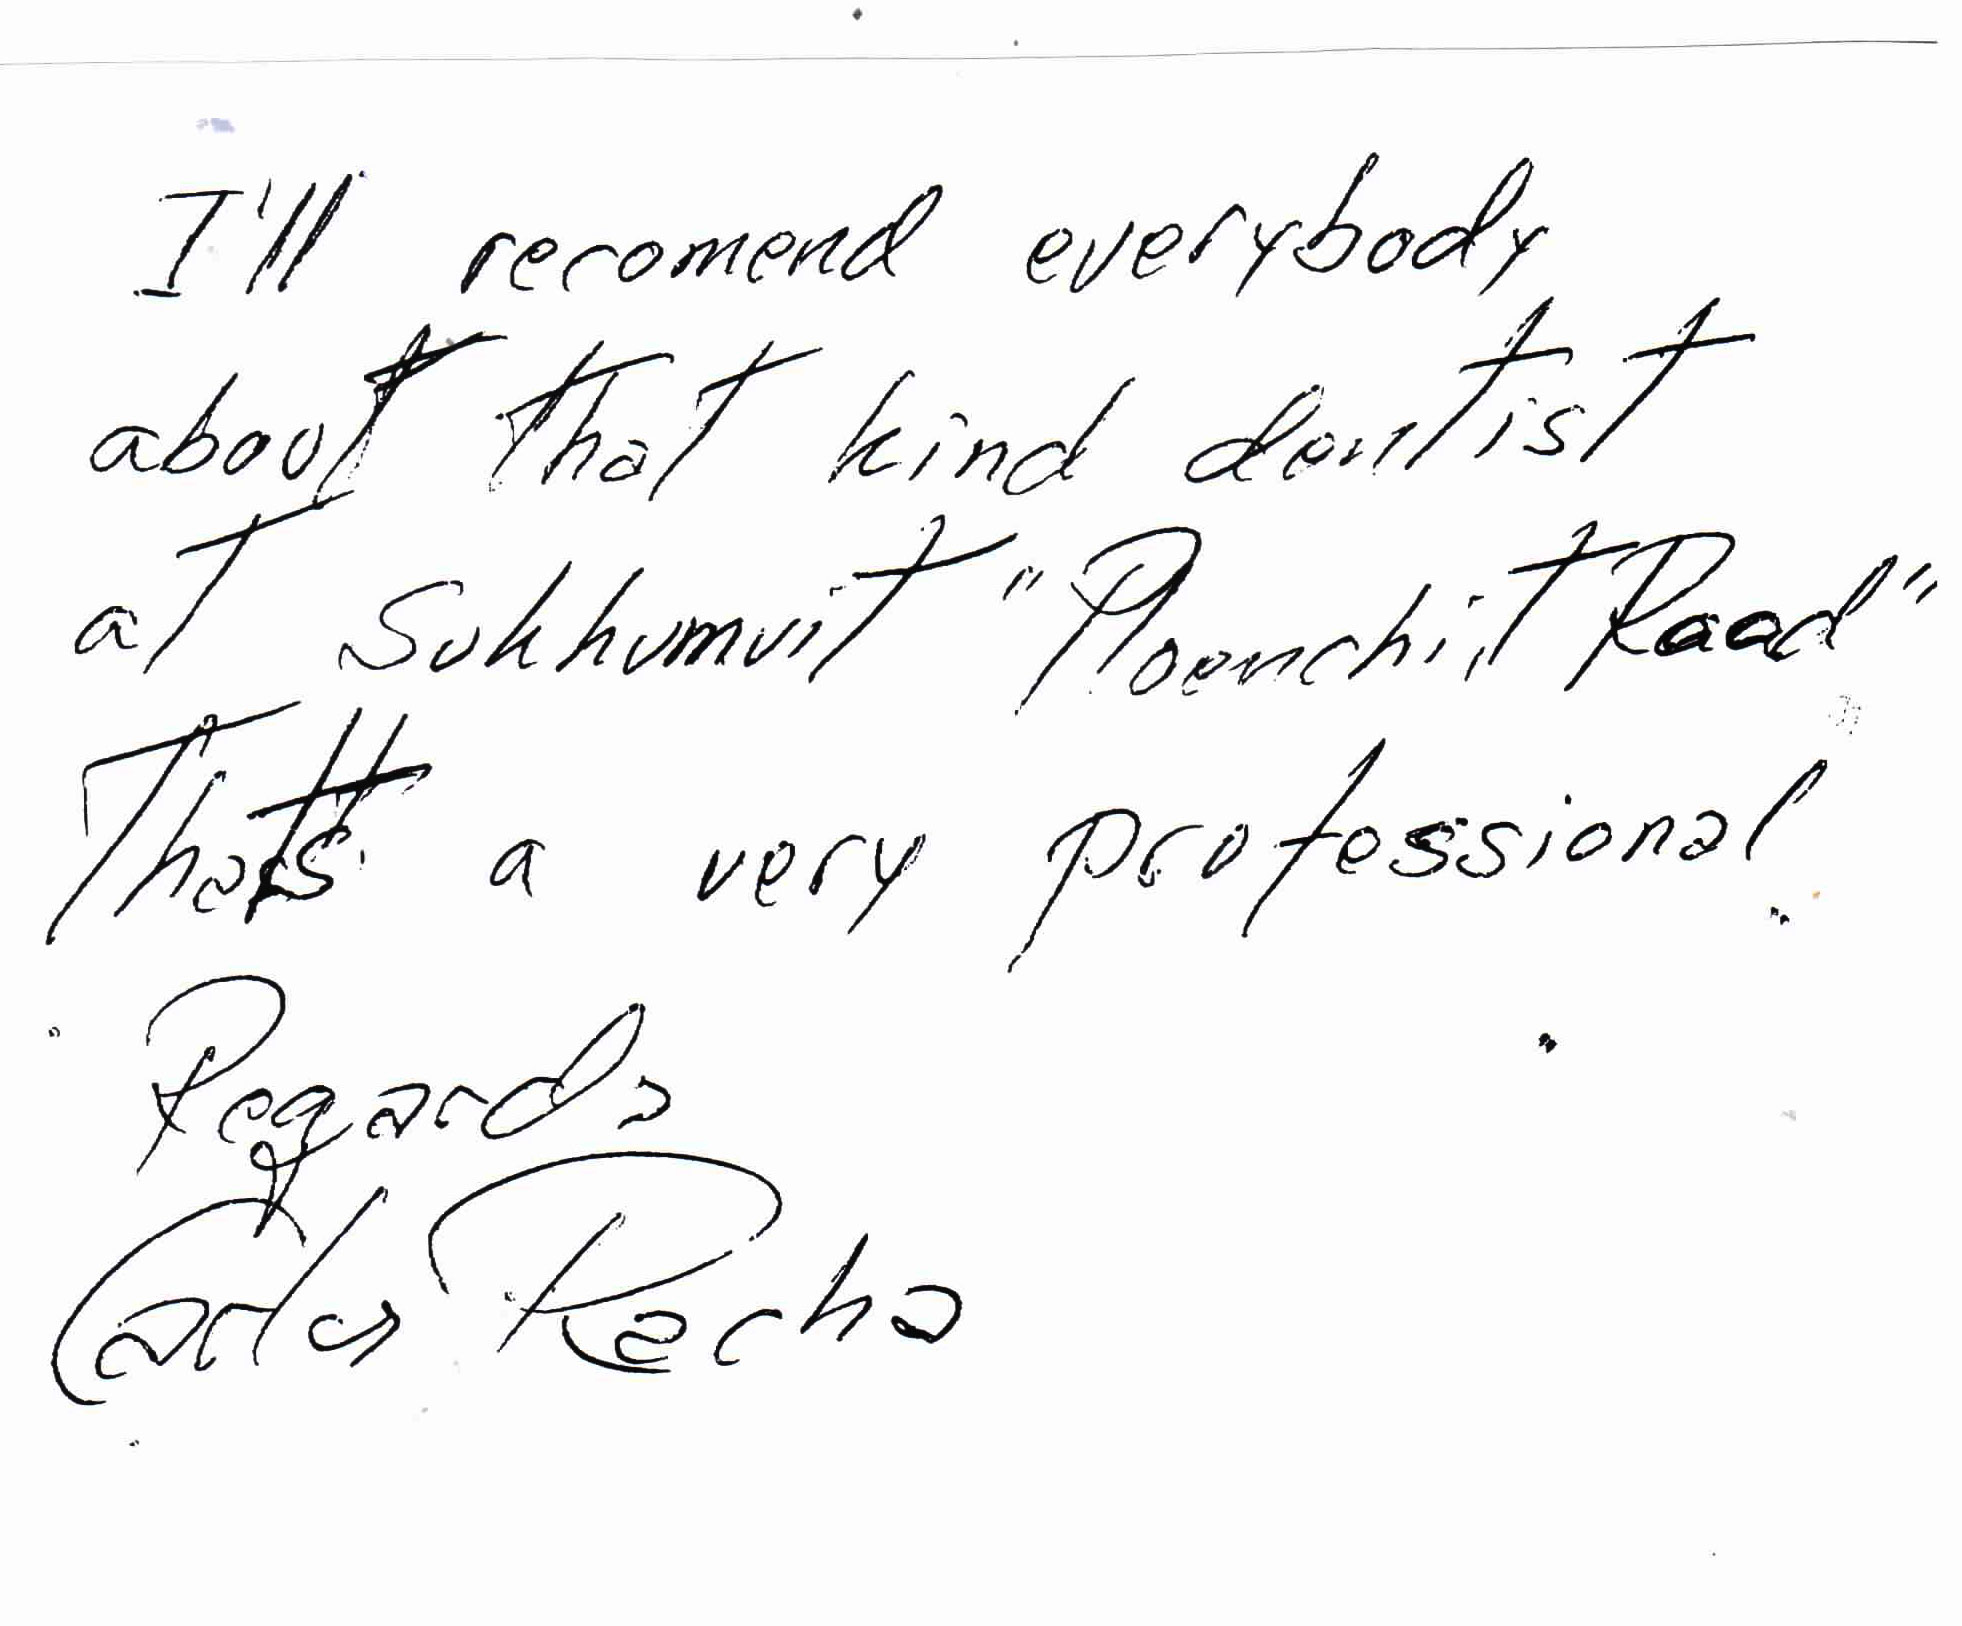 I'll recomend everybody
about that kind dentist
at Sukhumvit "Ploenchit Road"
That's a very professional.
Regards
Carlos Racha